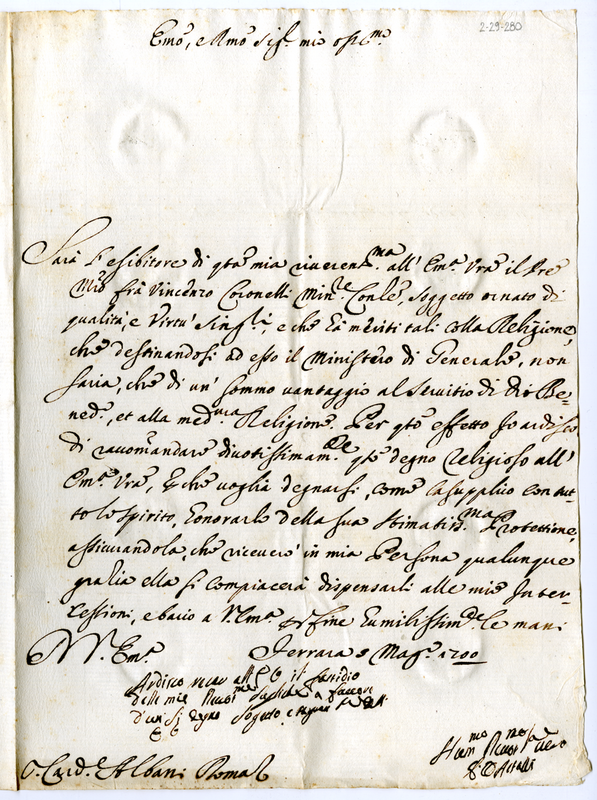 2-29-280
Emo, e Rmo Sigr mio ossmo
Sarà l'esibitore di qta mia riverentma all' Ema Vra il Pre
Mro frà Vincenzo Coronelli Minre Conle, soggetto ornato di
qualità, e Virtù Singri, e che hà meriti tali colla Religione,
che destinandosi ad esso il Ministero di Generale, non
saria, che di un' sommo vantaggio al Servitio di Dio Be-
nedo, et alla medma Religione. Per qto effetto Io ardisco
di raccomandare divotissimamte qto degno Religioso all'
Ema Vra, che voglia degnarsi, come la supplico con tut-
to lo spirito, honorarlo della sua stimatisma Protettione,
assicurandola, che riceverò in mia Persona qualunque
gratia ella si compiacerà dispensarli alle mie Inter-
cessioni, e bacio a V. Ema per fine humilissimte le mani
Di V. Ema Ferrara 8 Mago 1700
Ardisco
delle mie
d'un sì degno Sogetto, e
Hummo
S. Card. Albani Roma